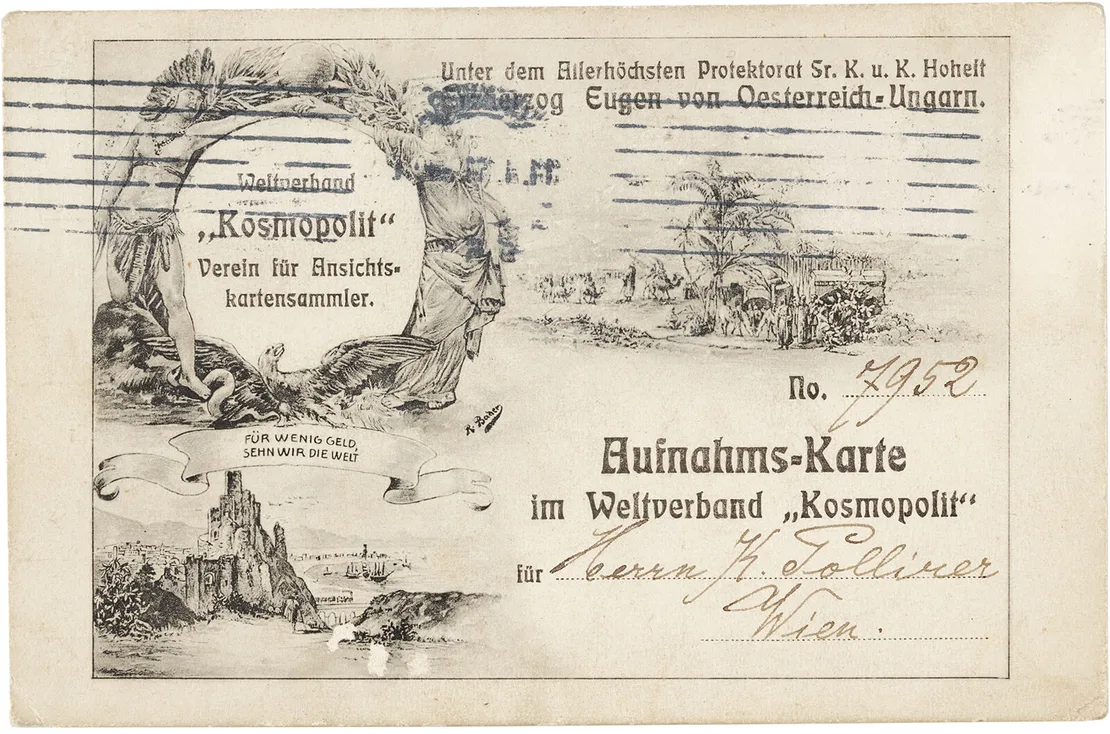 Unter dem Allerhöchsten Protektorat Sr. K. u. K. Hoheit
Erzherzog Eugen von Oesterreich-Ungarn.
Weltverband
„Kosmopolit“
Verein für Ansichts-
kartensammler.
R. Bauer
FÜR WENIG GELD,
SEHN WIR DIE WELT
No. 7952
Aufnahms-Karte
im Weltverband „Kosmopolit“
für Herrn K. Pollirer
Wien.